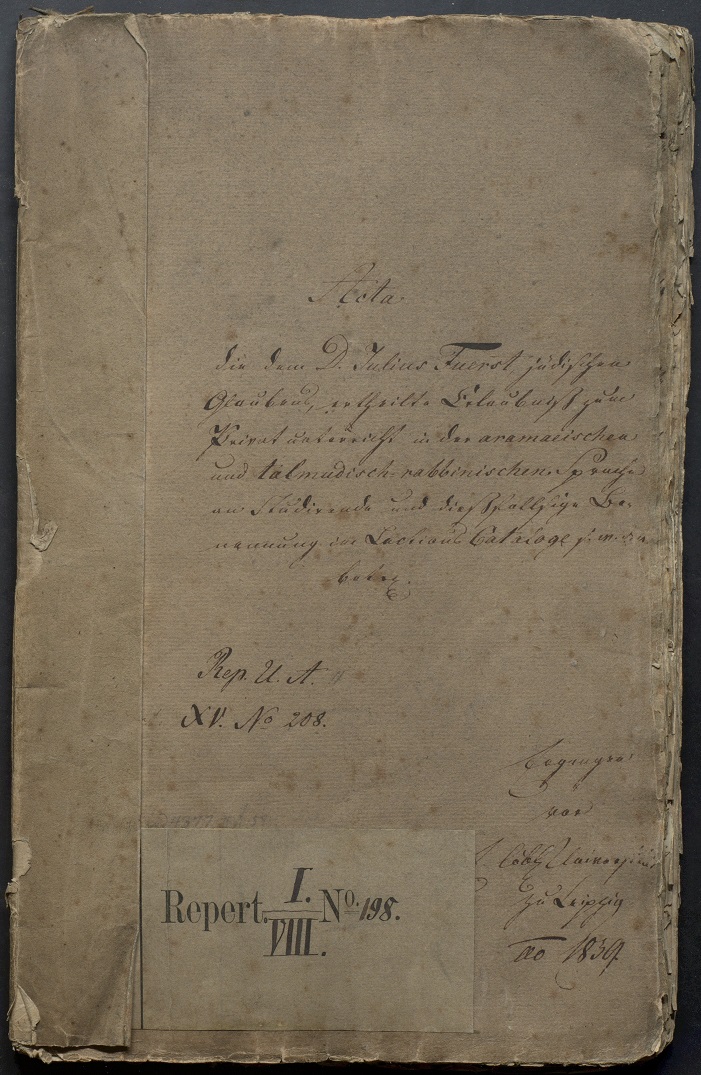 Acta
die dem D. Julius Fuerst jüdischen
Glaubens, ertheilte Erlaubniß zum
Privatunterricht in der aramaeischen
und talmudisch-rabbinischen Sprache
an Studirende und dießfallsige Be-
nennung im Lections Cataloge
betr.
Rep. U. A.
XV. No 208.
Ergangen
vor
löbl. Universität
zu Leipzig
ao 1839.
Repert. I. VIII. No. 198.